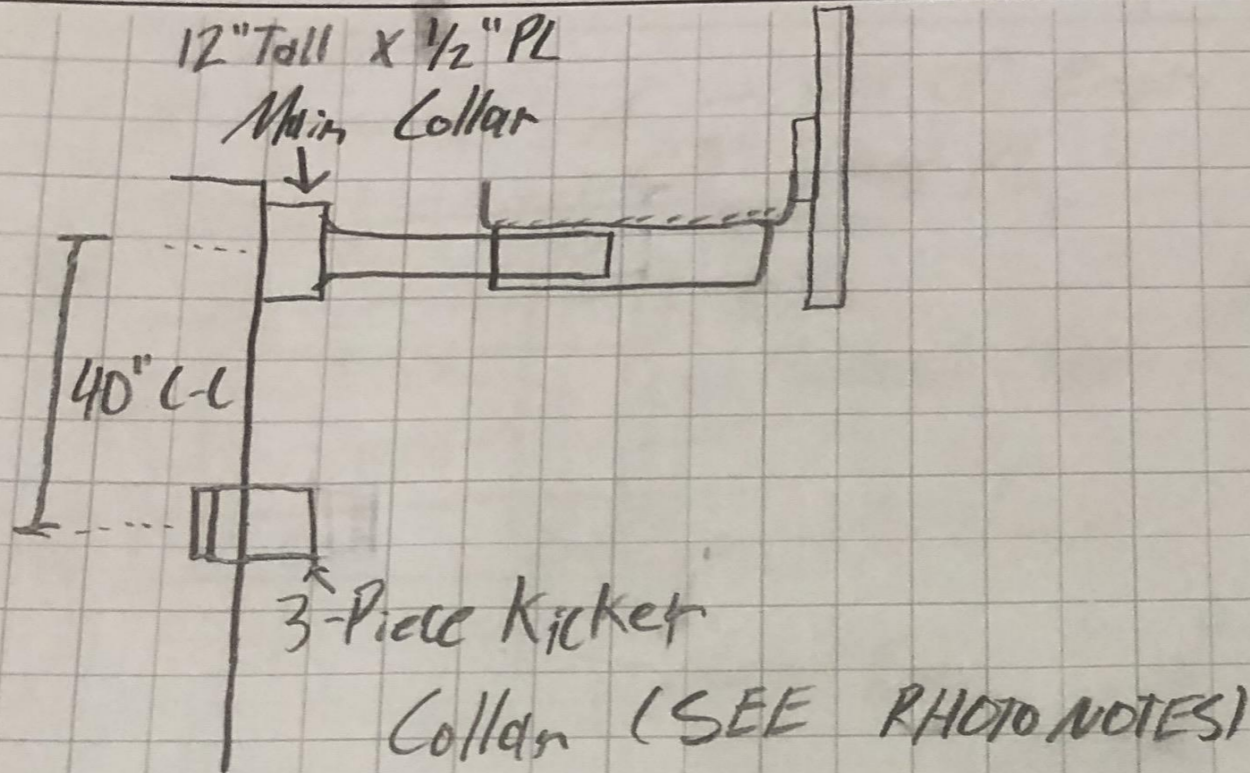 12" Tall x 1/2" PL
Main Collar
40" C-C
3-Piece Kicker
Collar (SEE PHOTO NOTES)